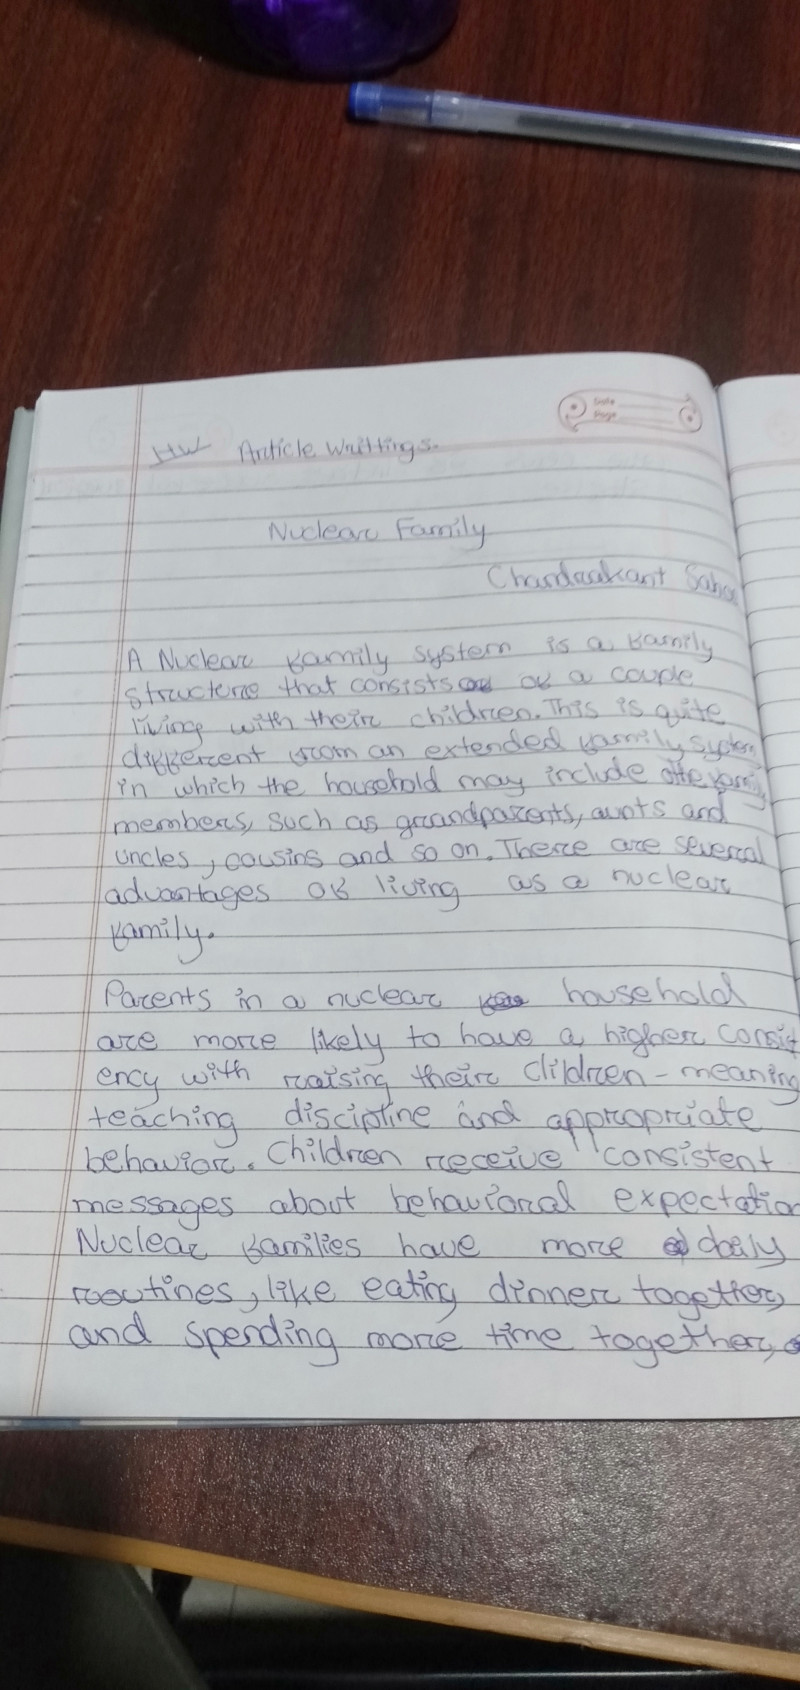 Date
Page
HW Article Writtings.
Nuclear Family
Chandrakant Sahoo
A Nuclear family system is a family
structure that consists of a couple
living with their children. This is quite
different from an extended family system
in which the household may include othe family
members, such as grandparents, aunts and
uncles, cousins and so on. There are several
advantages of living as a nuclear
family.
Parents in a nuclear household
are more likely to have a higher consist
ency with raising their Clildren - meaning
teaching discipline and appropriate
behavior. Children receive consistent
messages about behavioral expectation
Nuclear families have more daily
routines, like eating dinner together,
and spending more time together,